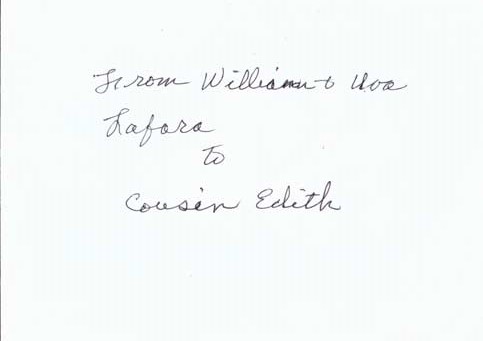 From William & Uva
Lafara
to
Cousin Edith